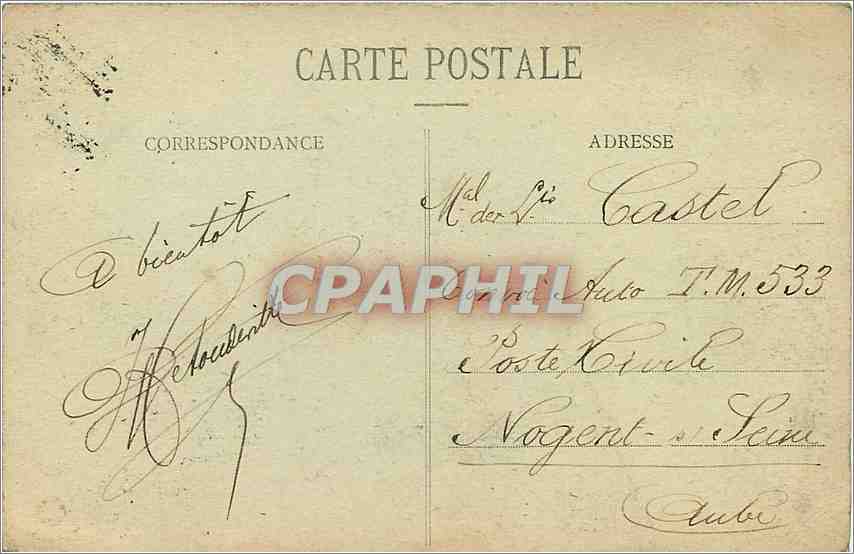 CARTE POSTALE
CORRESPONDANCE
ADRESSE
A bientôt
Mal der Lis Castel
Convoi Auto T.M. 533
Poste Civile
Nogent-s/ Seine
Aube
CPAPHIL